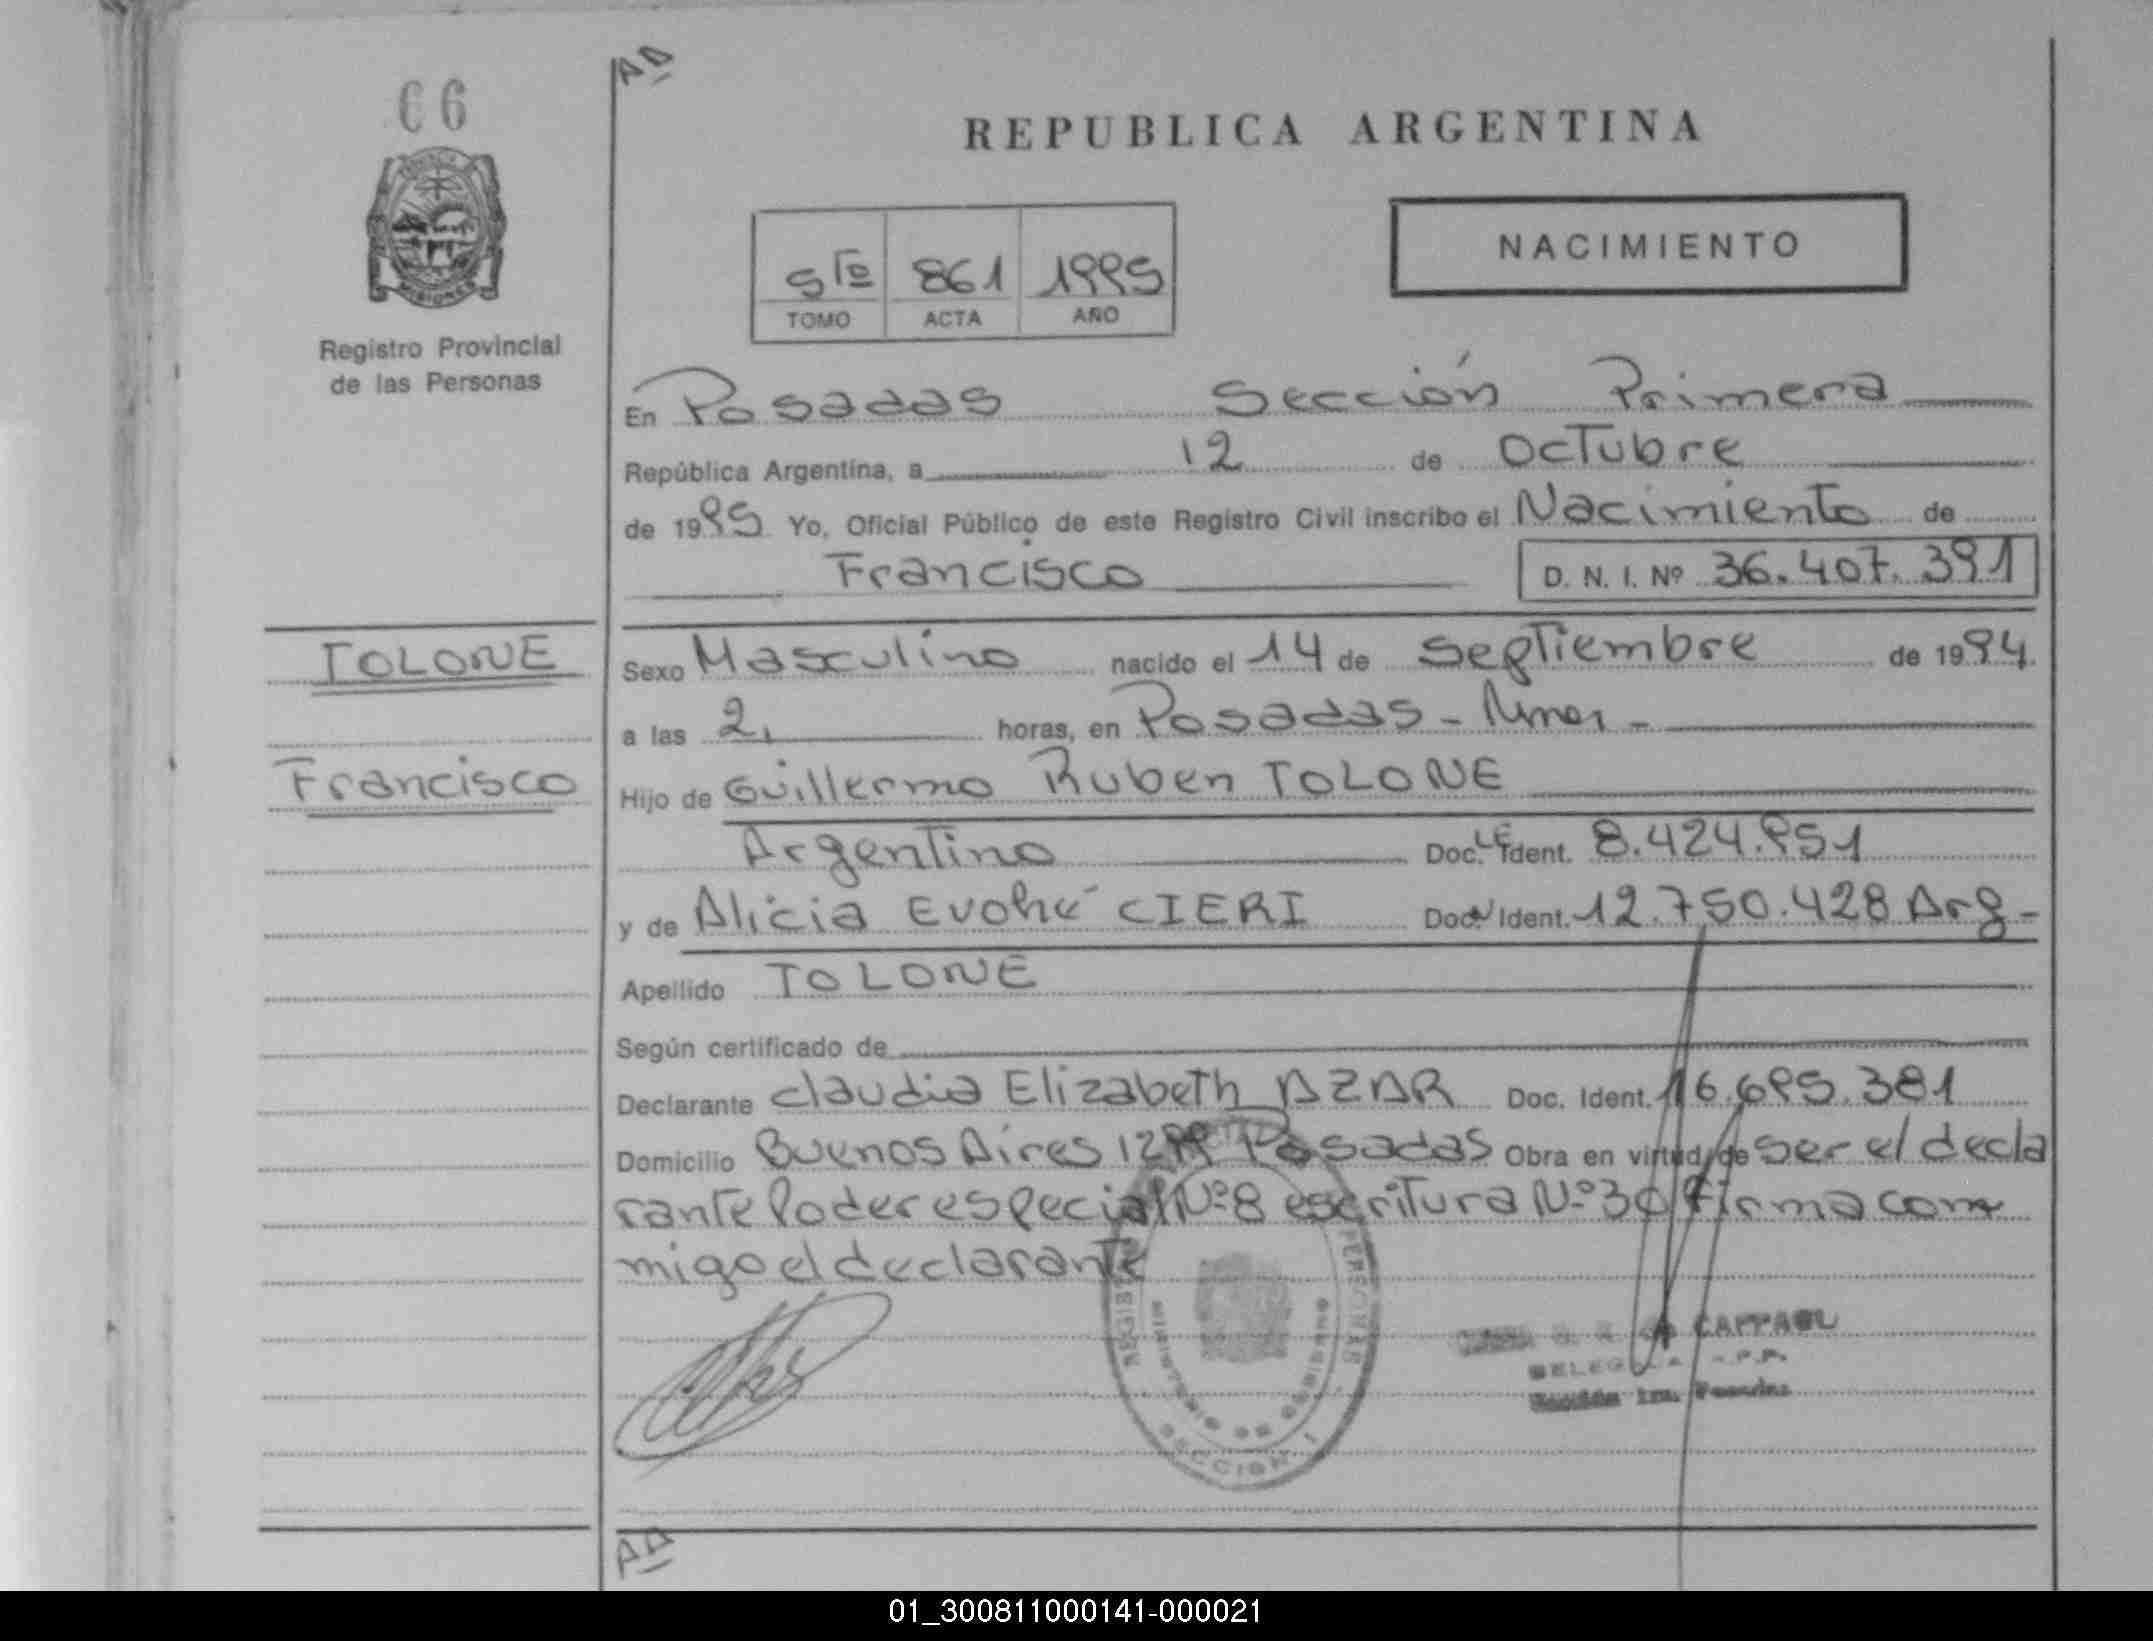 66
REPUBLICA ARGENTINA
NACIMIENTO
5to 861 1995
TOMO ACTA AÑO
MISIONES
Registro Provincial
de las Personas
En Posadas Sección Primera
República Argentina, a 12 de Octubre
de 1995 Yo, Oficial Público de este Registro Civil inscribo el Nacimiento de
Francisco D. N. I. Nº 36.407.391
TOLONE
Francisco
Sexo Masculino nacido el 14 de Septiembre de 1994
a las 2, horas, en Posadas -
Hijo de Guillermo Ruben TOLONE
Argentino Doc. LE Ident. 8.424.951
y de Alicia Evohé CIERI Doc. Ident. 12.750.428 Arg -
Apellido TOLONE
Según certificado de
Declarante Claudia Elizabeth AZAR Doc. Ident. 16.695.381
Domicilio Buenos Aires Posadas Obra en virtud de ser el decla
rante Poder especial Nº 8 escritura Nº 30 firma con
migo el declarante
REGISTRO PERSONAS
MINISTERIO DE GOBIERNO
SECCION 1
01_300811000141-000021